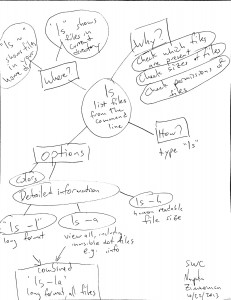 "ls ~"
shows files
"ls" shows
files in
current
directory
Where?
Why?
check which files
are present
Check sizes of files
Check permissions of
files
ls
list files
from the command
line
How?
type "ls"
options
colors
Detailed information
ls -l
long format
ls -a
view all, including
invisible dot files
e.g. info
ls -h
human readable
file size
combined
ls -la
long format, all files
SWC
Zimmerman